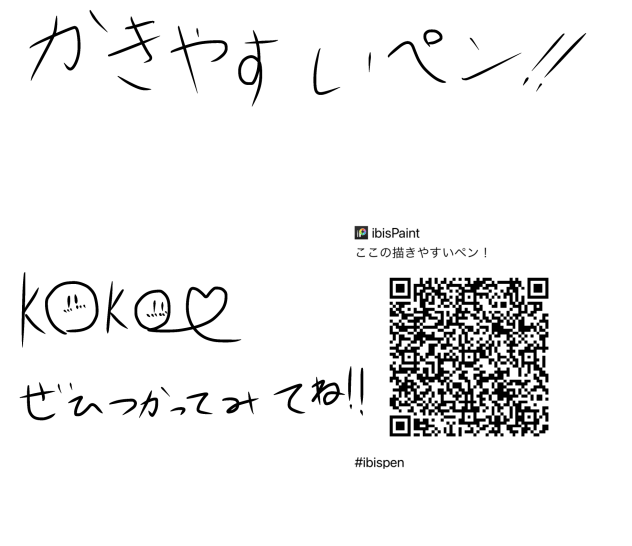 かきやすいペン!!
ibisPaint
ここの描きやすいペン！
KOKO♡
ぜひつかってみてね!!
#ibispen